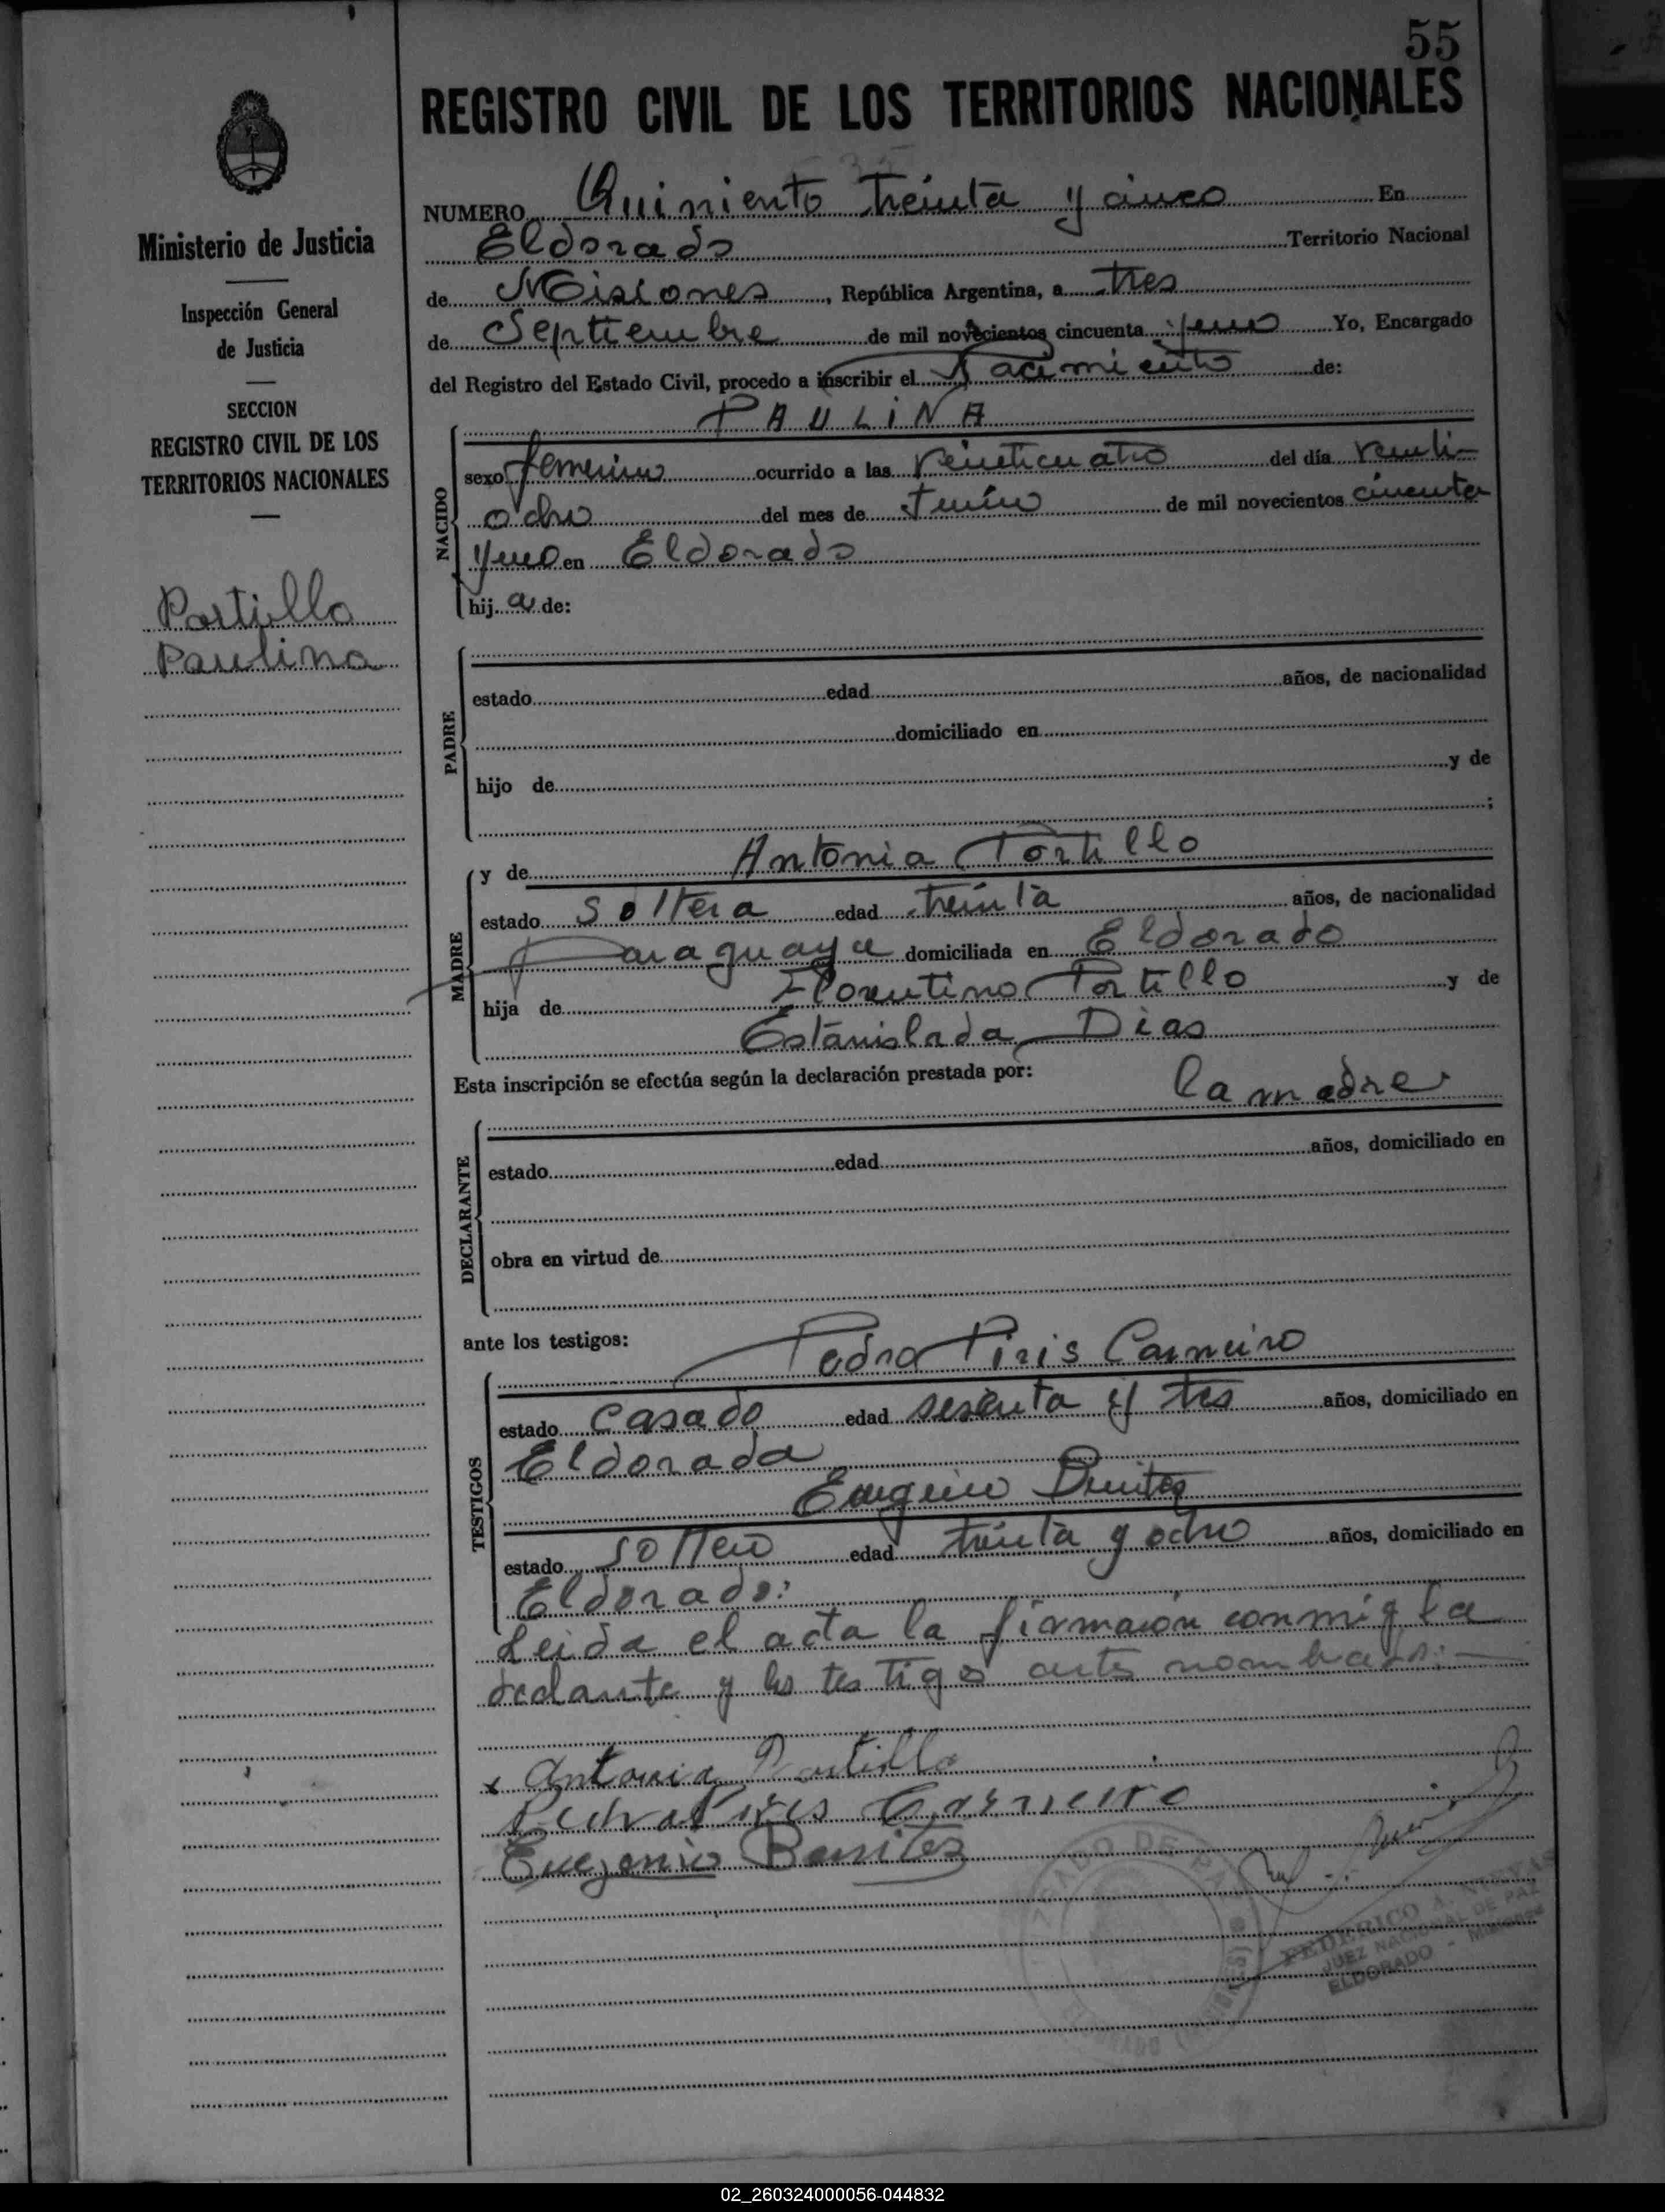 55
REGISTRO CIVIL DE LOS TERRITORIOS NACIONALES
Ministerio de Justicia
Inspección General
de Justicia
SECCION
REGISTRO CIVIL DE LOS
TERRITORIOS NACIONALES
Portillo
Paulina
NUMERO Quiniento treinta y cinco En
Eldorado Territorio Nacional
de Misiones, República Argentina, a tres
de Septiembre de mil novecientos cincuenta y uno Yo, Encargado
del Registro del Estado Civil, procedo a inscribir el Nacimiento de:
PAULINA
NACIDO
sexo femenino ocurrido a las veinticuatro del día veinti-
ocho del mes de Junio de mil novecientos cincuenta
y uno en Eldorado
hija de:
PADRE
estado edad años, de nacionalidad
domiciliado en
hijo de y de
;
MADRE
y de Antonia Portillo
estado soltera edad treinta años, de nacionalidad
Paraguaya domiciliada en Eldorado
hija de Florentino Portillo y de
Estanislada Dias
Esta inscripción se efectúa según la declaración prestada por:
la madre
DECLARANTE
estado edad años, domiciliado en
obra en virtud de
ante los testigos: Pedro Piris Carneiro
TESTIGOS
estado casado edad sesenta y tres años, domiciliado en
Eldorado
Eugenio Benitez
estado soltero edad treinta y ocho años, domiciliado en
Eldorado:
Leida el acta la firmaron conmigo la
declante y los testigos antes nombrados:
x Antonia Portillo
Pedro Piris Carneiro
Eugenio Benitez
JUZGADO DE PAZ
ELDORADO (MISIONES)
FEDERICO A.
JUEZ NACIONAL DE PAZ
ELDORADO - Misiones
02_260324000056-044832